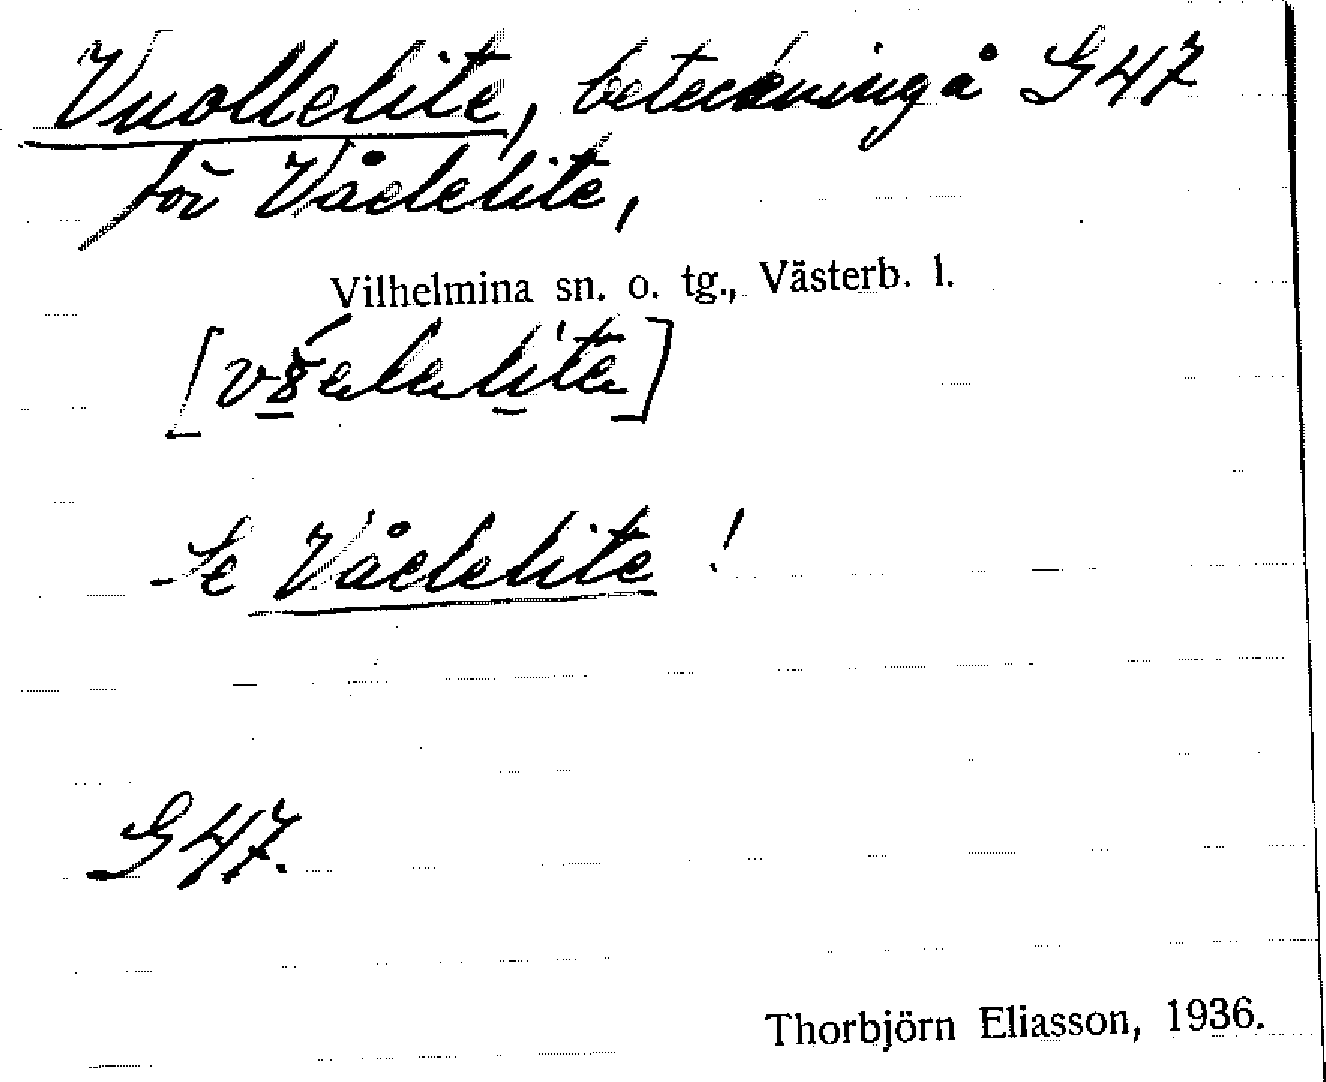 Vuollelite, beteckning å G47
för Våelelite,
Vilhelmina sn. o. tg., Västerb. l.
Se Våelelite!
G47.
Thorbjörn Eliasson, 1936.